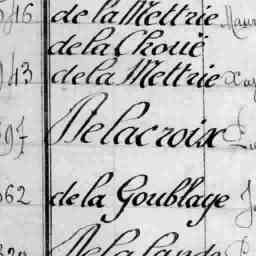 516 de la Mettrie
de la Choüe
943 de la Mettrie Xa
Delacroix
562 de la Goublaye
Delalande